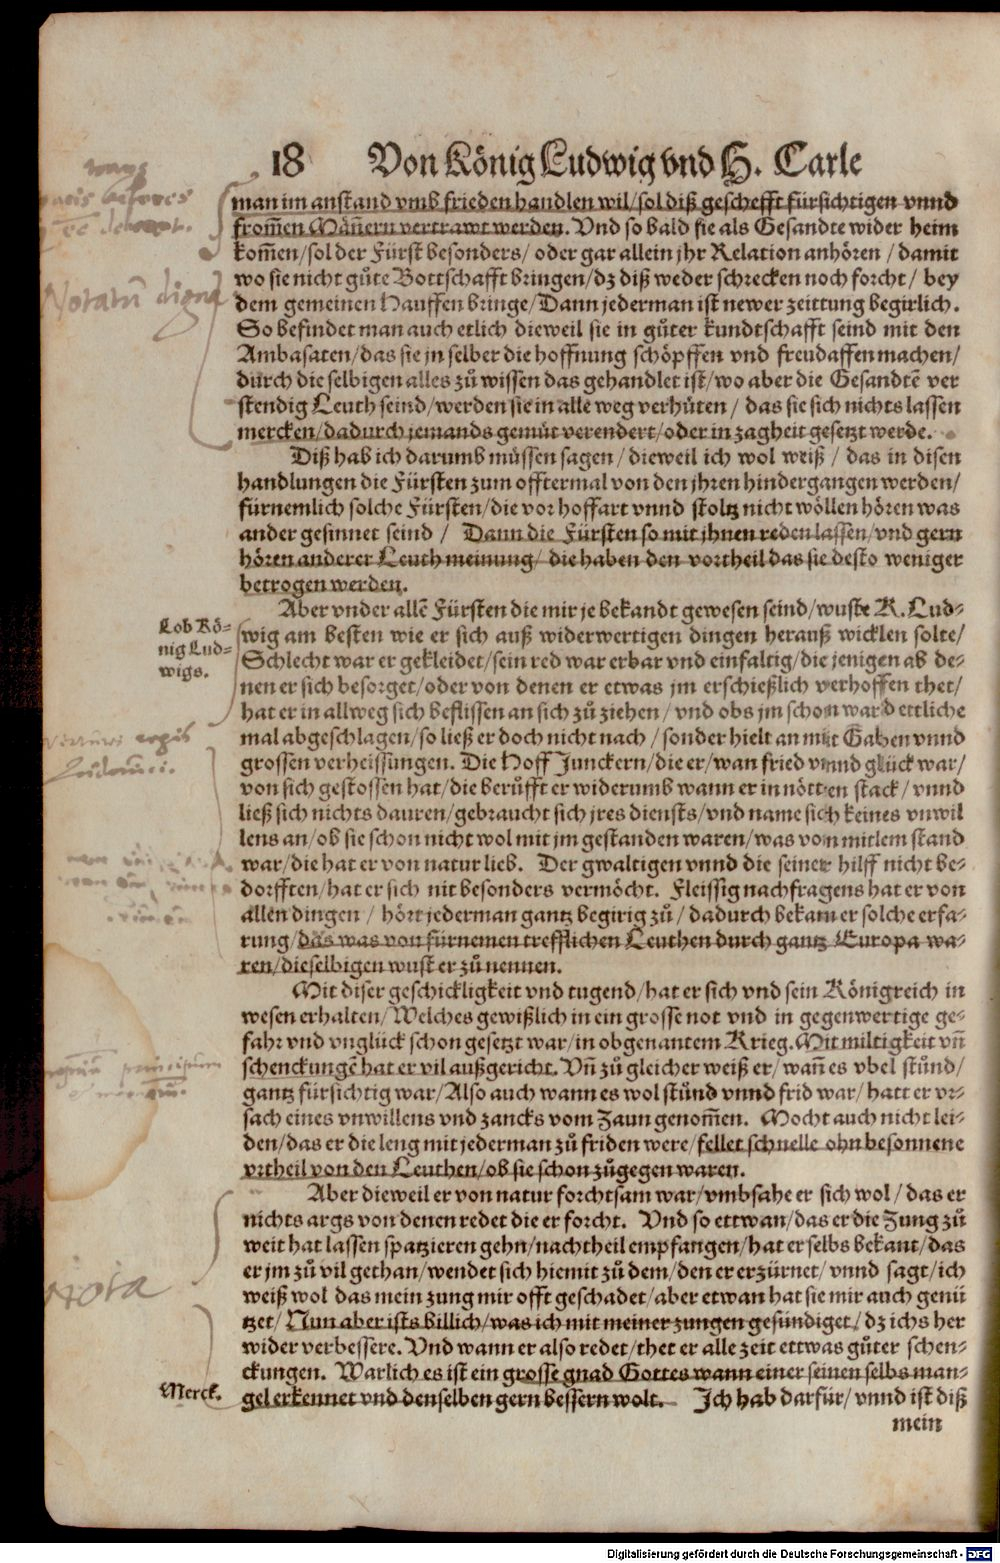 18 Von König Ludwig vnd H. Carle
man im anstand vmb frieden handlen wil/sol diß geschefft fürsichtigen vnnd
from̃en Mäñern vertrawt werden. Vnd so bald sie als Gesandte wider heim
kom̃en/sol der Fürst besonders/oder gar allein jhr Relation anhören/damit
wo sie nicht gůte Bottschafft bringen/dz diß weder schrecken noch forcht/bey
dem gemeinen Hauffen bringe/Dann jederman ist newer zeittung begirlich.
So befindet man auch etlich dieweil sie in gůter kundtschafft seind mit den
Ambasaten/das sie jn selber die hoffnung schöpffen vnd freud affen machen/
durch die selbigen alles zů wissen das gehandlet ist/wo aber die Gesandtẽ ver
stendig Leuth seind/werden sie in alle weg verhüten/das sie sich nichts lassen
mercken/dadurch jemands gemüt verendert/oder in zagheit gesetzt werde.
Diß hab ich darumb müssen sagen/dieweil ich wol weiß/das in disen
handlungen die Fürsten zum offtermal von den jhren hindergangen werden/
fürnemlich solche Fürsten/die vor hoffart vnnd stoltz nicht wöllen hören was
ander gesinnet seind/Dann die Fürsten so mit jhnen reden lassen/vnd gern
hören anderer Leuth meinung/die haben den vortheil das sie desto weniger
betrogen werden.
Aber vnder allẽ Fürsten die mir je bekandt gewesen seind/wuste K. Lud-
Lob Kö-
nig Lud-
wigs.
wig am besten wie er sich auß widerwertigen dingen herauß wicklen solte/
Schlecht war er gekleidet/sein red war erbar vnd einfaltig/die jenigen ab de-
nen er sich besorget/oder von denen er etwas jm erschießlich verhoffen thet/
hat er in allweg sich beflissen an sich zů ziehen/vnd obs jm schon ward ettliche
mal abgeschlagen/so ließ er doch nicht nach/sonder hielt an mit Gaben vnnd
grossen verheissungen. Die Hoff Junckern/die er/wan fried vnnd glück war/
von sich gestossen hat/die berůfft er widerumb wann er in nötten stack/vnnd
ließ sich nichts dauren/gebraucht sich jres diensts/vnd name sich keines vnwil
lens an/ob sie schon nicht wol mit jm gestanden waren/was von mitlem stand
war/die hat er von natur lieb. Der gwaltigen vnnd die seiner hilff nicht be-
dorfften/hat er sich nit besonders vermöcht. Fleissig nachfragens hat er von
allen dingen/hört jederman gantz begirig zů/dadurch bekam er solche erfa-
rung/das was von fürnemen trefflichen Leuthen durch gantz Europa wa-
ren/dieselbigen wust er zů nennen.
Mit diser geschickligkeit vnd tugend/hat er sich vnd sein Königreich in
wesen erhalten/Welches gewißlich in ein grosse not vnd in gegenwertige ge-
fahr vnd vnglück schon gesetzt war/in obgenantem Krieg. Mit miltigkeit vñ
schenckungẽ hat er vil außgericht. Vñ zů gleicher weiß er/wañ es vbel stůnd/
gantz fürsichtig war/Also auch wann es wol stůnd vnnd frid war/hatt er vr-
sach eines vnwillens vnd zancks vom Zaun genom̃en. Mocht auch nicht lei-
den/das er die leng mit jederman zů friden were/fellet schnelle ohn besonnene
vrtheil von den Leuthen/ob sie schon zůgegen waren.
Aber dieweil er von natur forchtsam war/vmbsahe er sich wol/das er
nichts args von denen redet die er forcht. Vnd so ettwan/das er die Zung zů
weit hat lassen spatzieren gehn/nachtheil empfangen/hat er selbs bekant/das
er jm zů vil gethan/wendet sich hiemit zů dem/den er erzürnet/vnnd sagt/ich
weiß wol das mein zung mir offt geschadet/aber etwan hat sie mir auch genü
tzet/Nun aber ists billich/was ich mit meiner zungen gesündiget/dz ichs her
wider verbessere. Vnd wann er also redet/thet er alle zeit ettwas gůter schen-
ckungen. Warlich es ist ein grosse gnad Gottes wann einer seinen selbs man-
Merck.
gel erkennet vnd denselben gern bessern wolt. Ich hab darfür/vnnd ist diß
mein
Notatũ dignũ
Nota
Digitalisierung gefördert durch die Deutsche Forschungsgemeinschaft - DFG